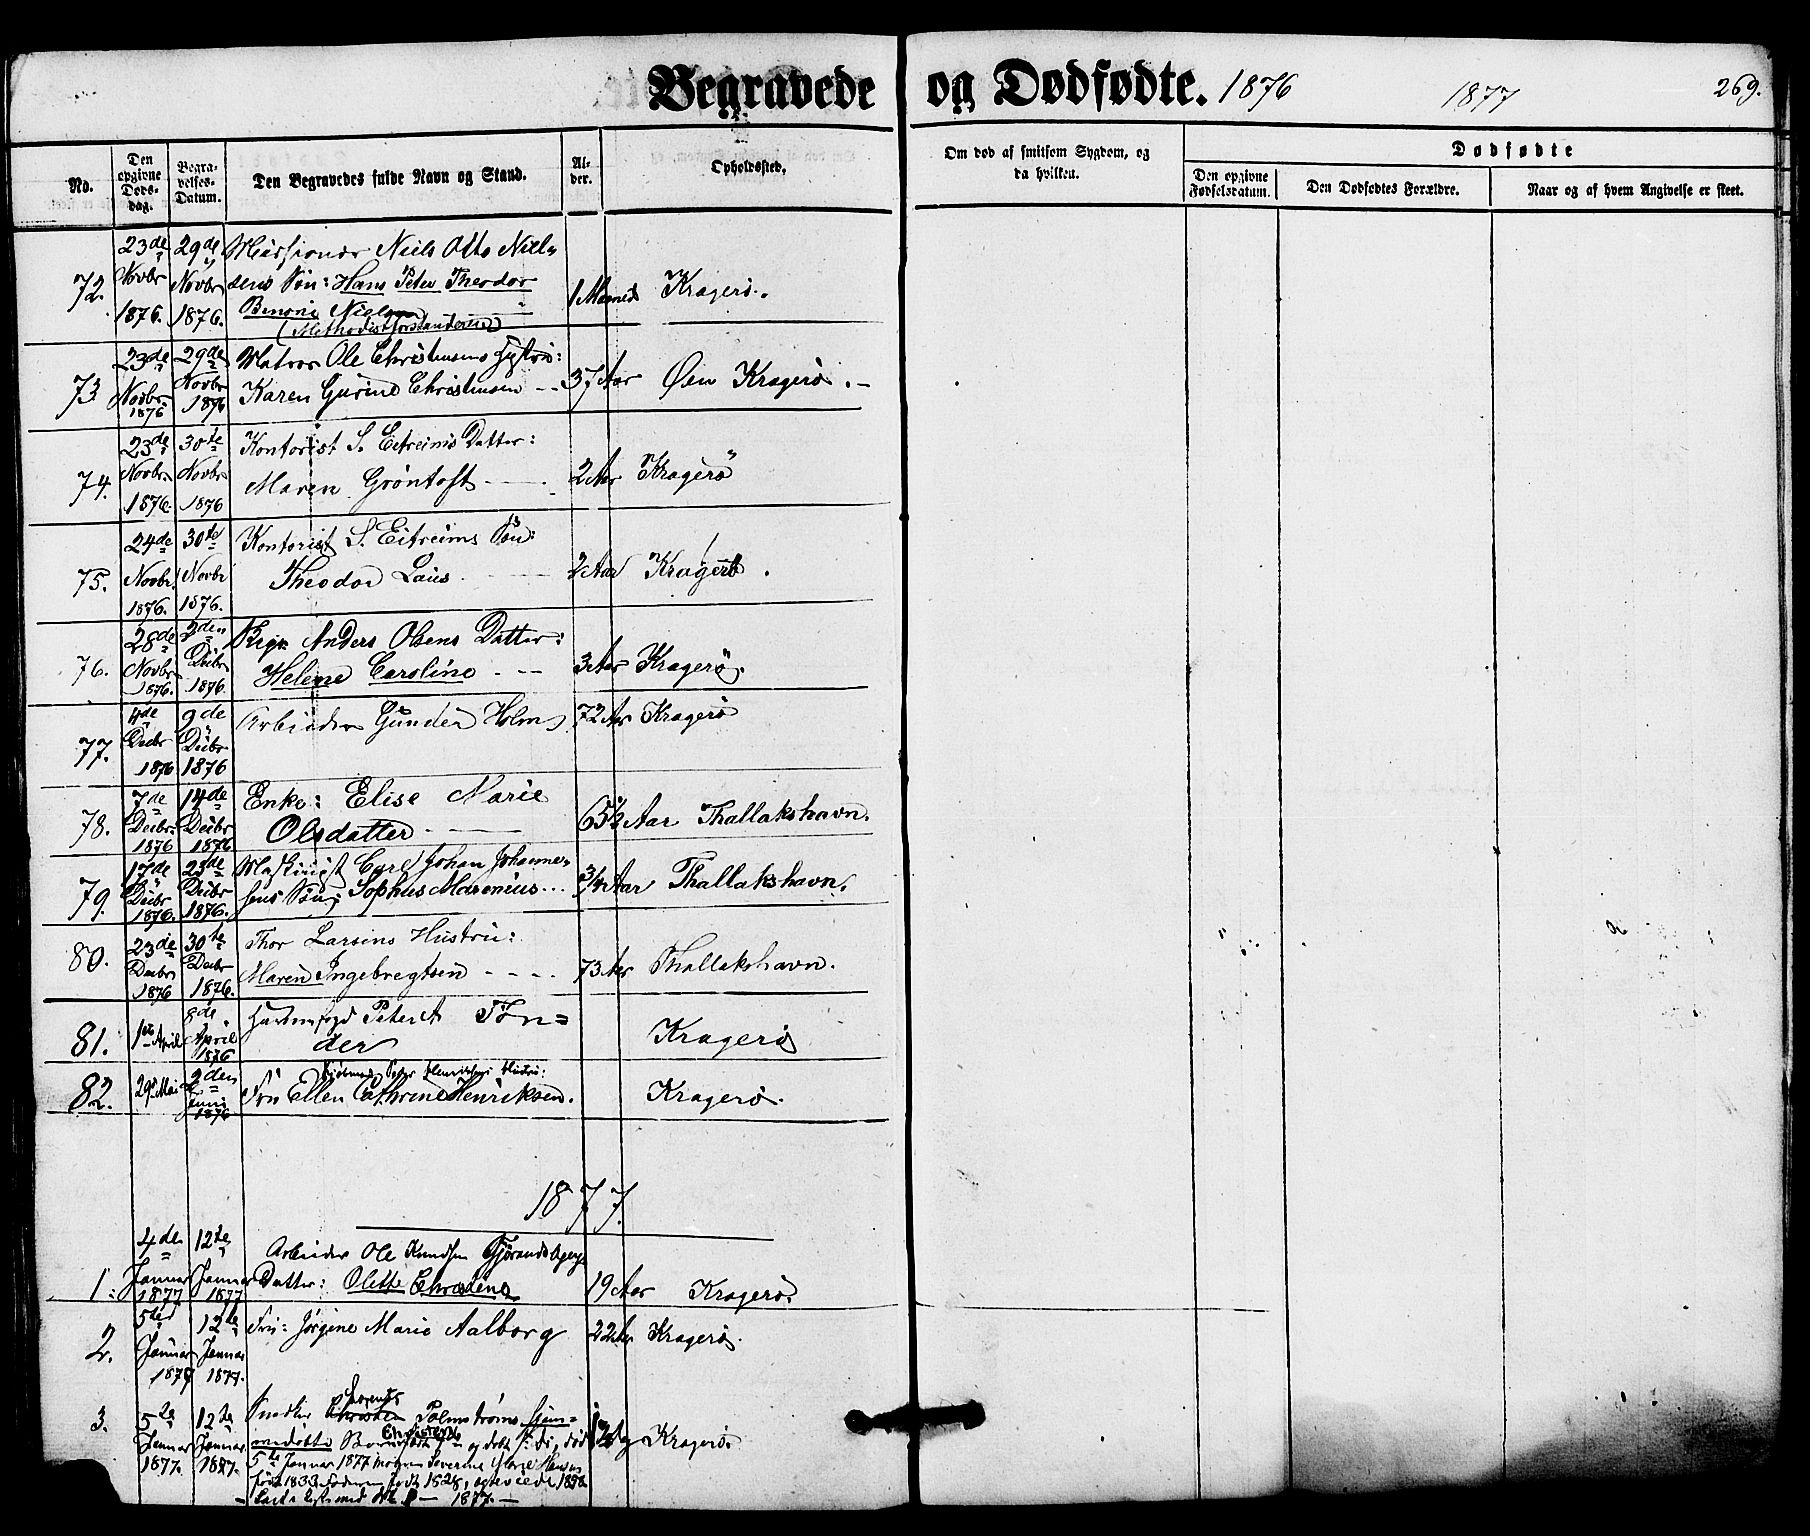 Begravede og Dødfødte. 1876 1877 269.
No.
Den opgivne Døds-dag.
Begra-velses-Datum.
Den Begravedes fulde Navn og Stand.
Al-der.
Opholdssted.
Om død af smitsom Sygdom, og da hvilken.
Dødfødte
Den opgivne Fødselsdatum.
Den Dødfødtes Forældre.
Naar og af hvem Angivelse er skeet.
72. 23de Novbr 1876. 29de Novbr 1876. Missionær Niels Otto Niel-
sens Søn: Hans Peter Theodor 1 Maaned Kragerö.
Benoni Nielsen
(Methodistforstanderen)
73 23de Novbr 1876 29de Novbr 1876 Matros Ole Christensens Hustru:
Karen Gurine Christensen -- 37 Aar Øen Kragerö.
74. 23de Novbr. 1876. 30te Novbr 1876 Kontorist S. Eitreims Datter:
Maren Gröntoft 2 Aar Kragerö
75. 24de Novbr. 1876. 30te Novbr 1876. Kontorist S. Eitreims Søn:
Theodor Laus 2 Aar Kragerö.
76. 28de Novbr 1876. 2den Decbr 1876. Anders Olsens Datter:
Helene Caroline 3 Aar Kragerö.
77. 4de Decbr 1876 9de Decbr 1876 Arbeider Gunder Holm 72 Aar Kragerö
78. 7de Decbr. 1876 14de Decbr 1876 Enke: Elise Marie
Olsdatter 65½ Aar Thallakshavn.
79. 17de Decbr 1876. 23de Decbr 1876. Maskinist Carl Johan Johanne-
sens Søn: Sophus Marenius 3/4 Aar Thallakshavn.
80. 23de Decbr 1876 30te Decbr 1876. Thor Larsens Hustru:
Maren Ingebregtsen 73 Aar Thallakshavn.
81. 1ste April 8de April 1876 Havnefogd Peter Tön=
der Kragerö
82. 29de Mai 2den Juni 1876 Peter Henriksens Hustru:
Ellen Cathrine Henriksen. Kragerö.
1877.
1. 4de Januar 1877 12te Januar 1877 Arbeider Ole Knudsen
Datter: Olette Christine 19 Aar Kragerö.
2. 5te Januar 1877 12te Januar 1877. Fru: Jørgine Marie Aalborg 22 Aar Kragerö.
3. 5te Januar 1877. 12te Januar 1877. Lorents
Snedker Christen Palmstrøms hjem-
medøbte Barn Kragerö.
5te Januar 1877 Severine
født 1833 født 1828, 1858
1877.